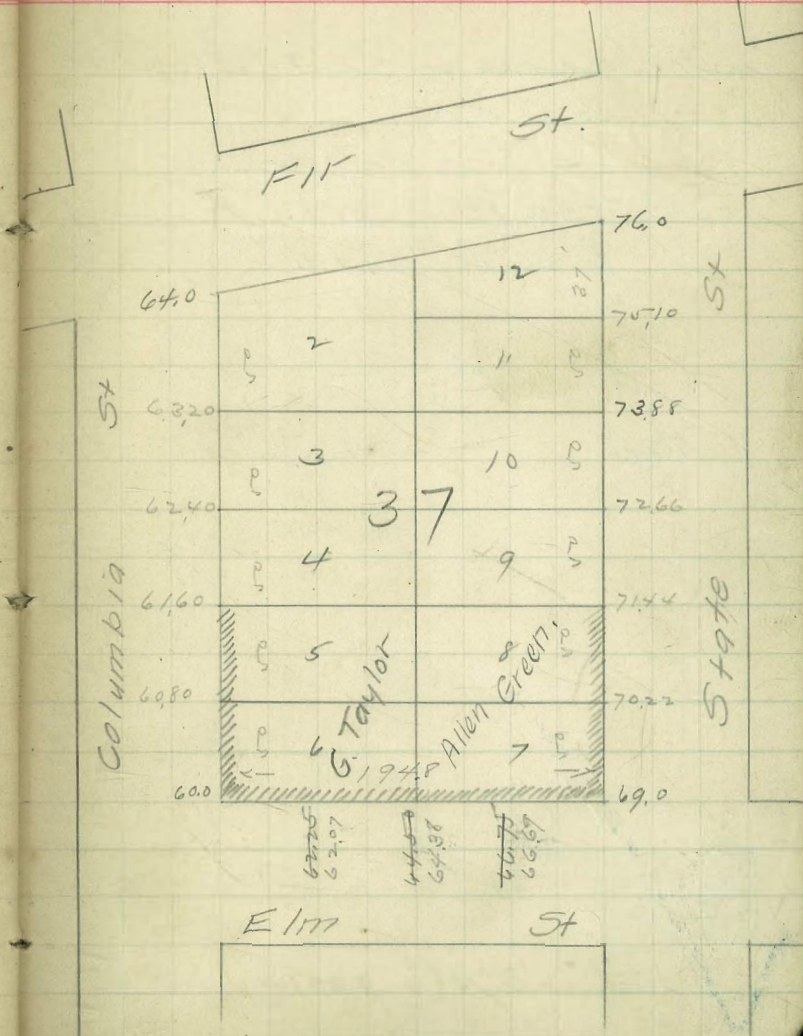 St.
Fir
76.0
12
St
64.0
75.10
2
11
St
63.20
73.88
3
10
37
62.40
72.66
4
9
Columbia
61.60
71.44
State
5
8
G. Taylor
Allen Green.
60.80
70.22
6
7
194.8
60.0
69.0
62.25
62.07
64.50
64.38
66.75
66.69
Elm St